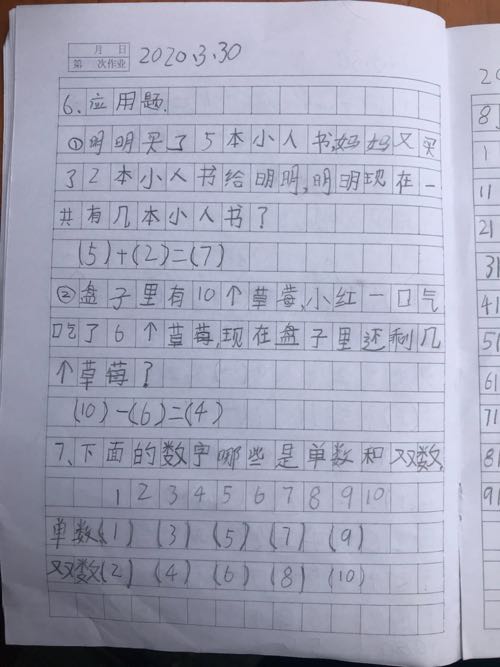 月 日
第 次作业
2020.3.30
6、应用题.
①明明买了5本小人书,妈妈又买
了2本小人书给明明,明明现在一
共有几本小人书?
(5)+(2)=(7)
②盘子里有10个草莓,小红一口气
吃了6个草莓,现在盘子里还剩几
个草莓?
(10)-(6)=(4)
7、下面的数字哪些是单数和双数
1 2 3 4 5 6 7 8 9 10
单数(1) (3) (5) (7) (9)
双数(2) (4) (6) (8) (10)
20
8
1
11
21
31
41
51
61
71
81
91